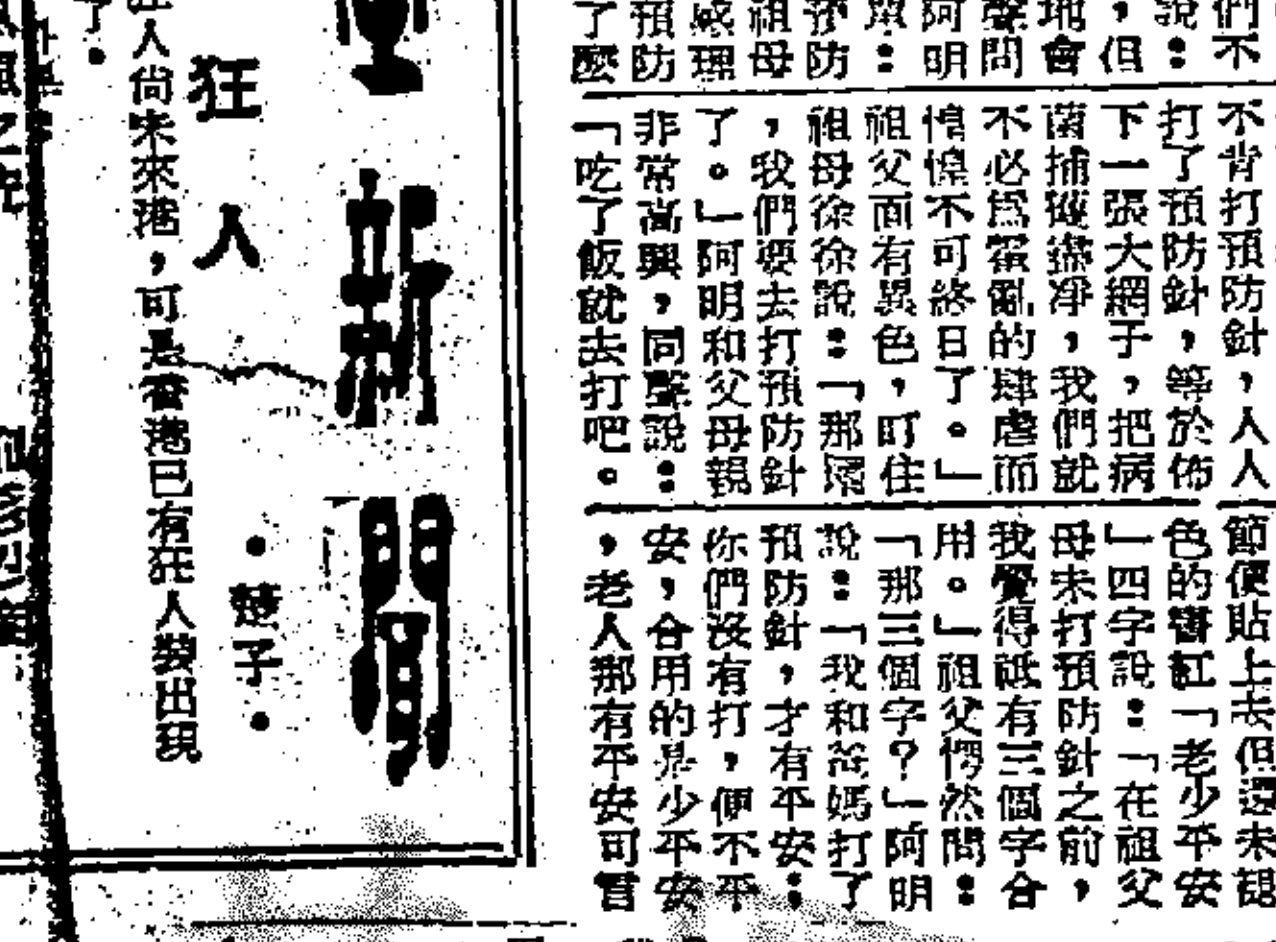 們不
說：
，但
地會
聲問
阿明
單：
預防
祖母
感理
預防
了麼
不背打預防針，人人
打了預防針，等於佈
下一張大網子，把病
菌捕獲盡淨，我們就
不必爲霍亂的肆虐而
惶惶不可終日了。」
祖父面有異色，盯住
祖母徐徐說：「那麼
，我們要去打預防針
了。」阿明和父母親
非常高興，同聲說：
「吃了飯就去打吧。
節便貼上去但還未
色的書缸「老少平安
」四字說：「在祖父
母未打預防針之前，
我覺得祗有三個字合
用。」祖父愕然問：
「那三個字？」阿明
說：「我和爸媽打了
預防針，才有平安；
你們沒有打，便不平
安，合用的是少平安
，老人那有平安可言
新聞
狂人
•楚子•
人尚未來港，可是香港已有狂人裝出現
了。